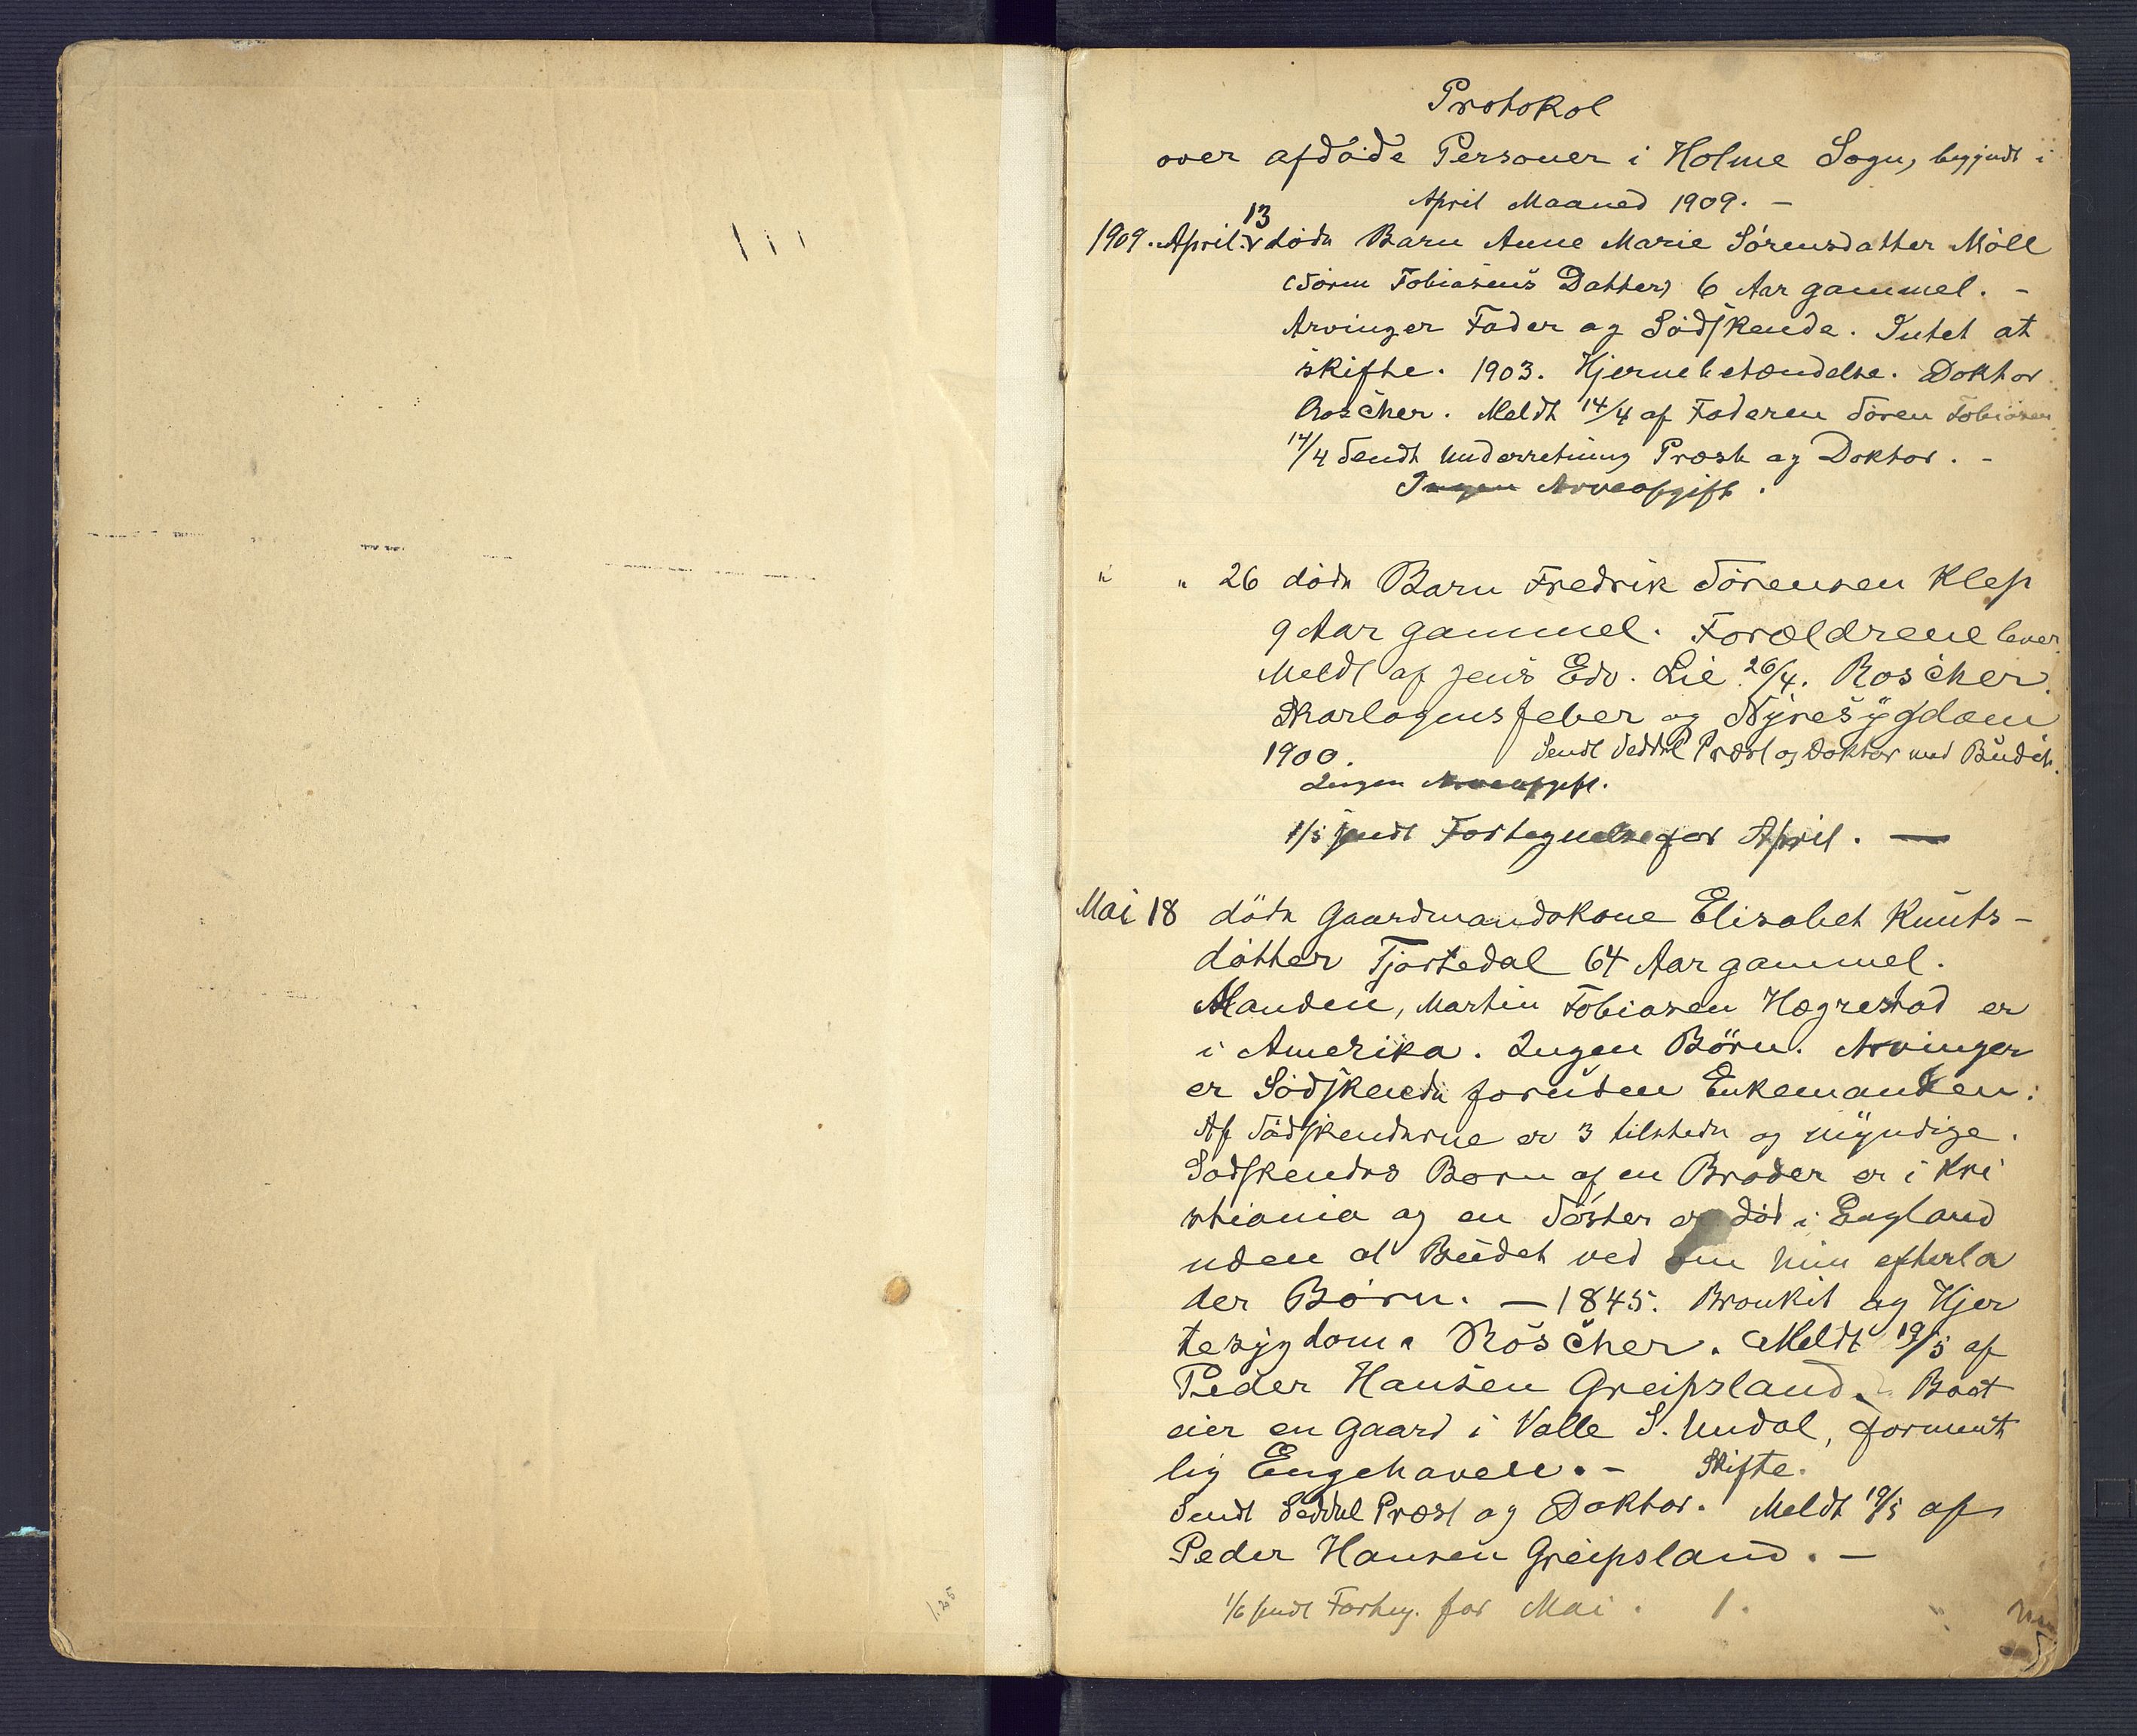 Protokol
over afdöde Personer i Holme Sogn, begyndt i
April Maaned 1909. -
13
1909. April. v döde Barn Anne Marie Sörensdatter Möll
(Sören Tobiasens Datter) 6 Aar gammel. -
Arvinger Fader og Södskende. Intet at
skifte. 1903. Hjernebetændelse. Doktor
Roscher. Meldt 14/4 af Faderen Sören Tobiasen
14/4 Sendt Underretning Præst og Doktor. -
Ingen Arveafgift.
" " 26 döde Barn Fredrik Sörensen Klep
9 Aar gammel. Forældrene lever.
Meldt af Jens Edv. Lie 26/4. Roscher.
Skarlagensfeber og Nyresygdom
1900. Sendt Seddel Præst og Doktor med Budet.
Ingen Arveafgift.
1/5 sendt Fortegnelse for April. —
Mai 18 döde Gaardmandskone Elisabet Knuts-
datter Tjortedal 64 Aar gammel.
Manden, Martin Tobiasen Hægrestad er
i Amerika. Ingen Börn. Arvinger
er Södskende foruden Enkemanden:
Af Södskenderne er 3 tilstede og myndige.
Sødskendes Børn af en Broder er i Kri
stiania og en Söster er död i England
uden at Budet ved om hun efterla
der Börn. — 1845. Bronkit og Hjer
tesygdom. Röscher. Meldt 19/5 af
Peder Hansen Greipsland. Boet
eier en Gaard i Valle S. Undal, forment
lig Engehaven. - Skifte.
Sendt Seddel Præst og Doktor. Meldt 19/5 af
Peder Hansen Greipsland. —
1/6 sendt Forteg. for Mai. 1.
1.25